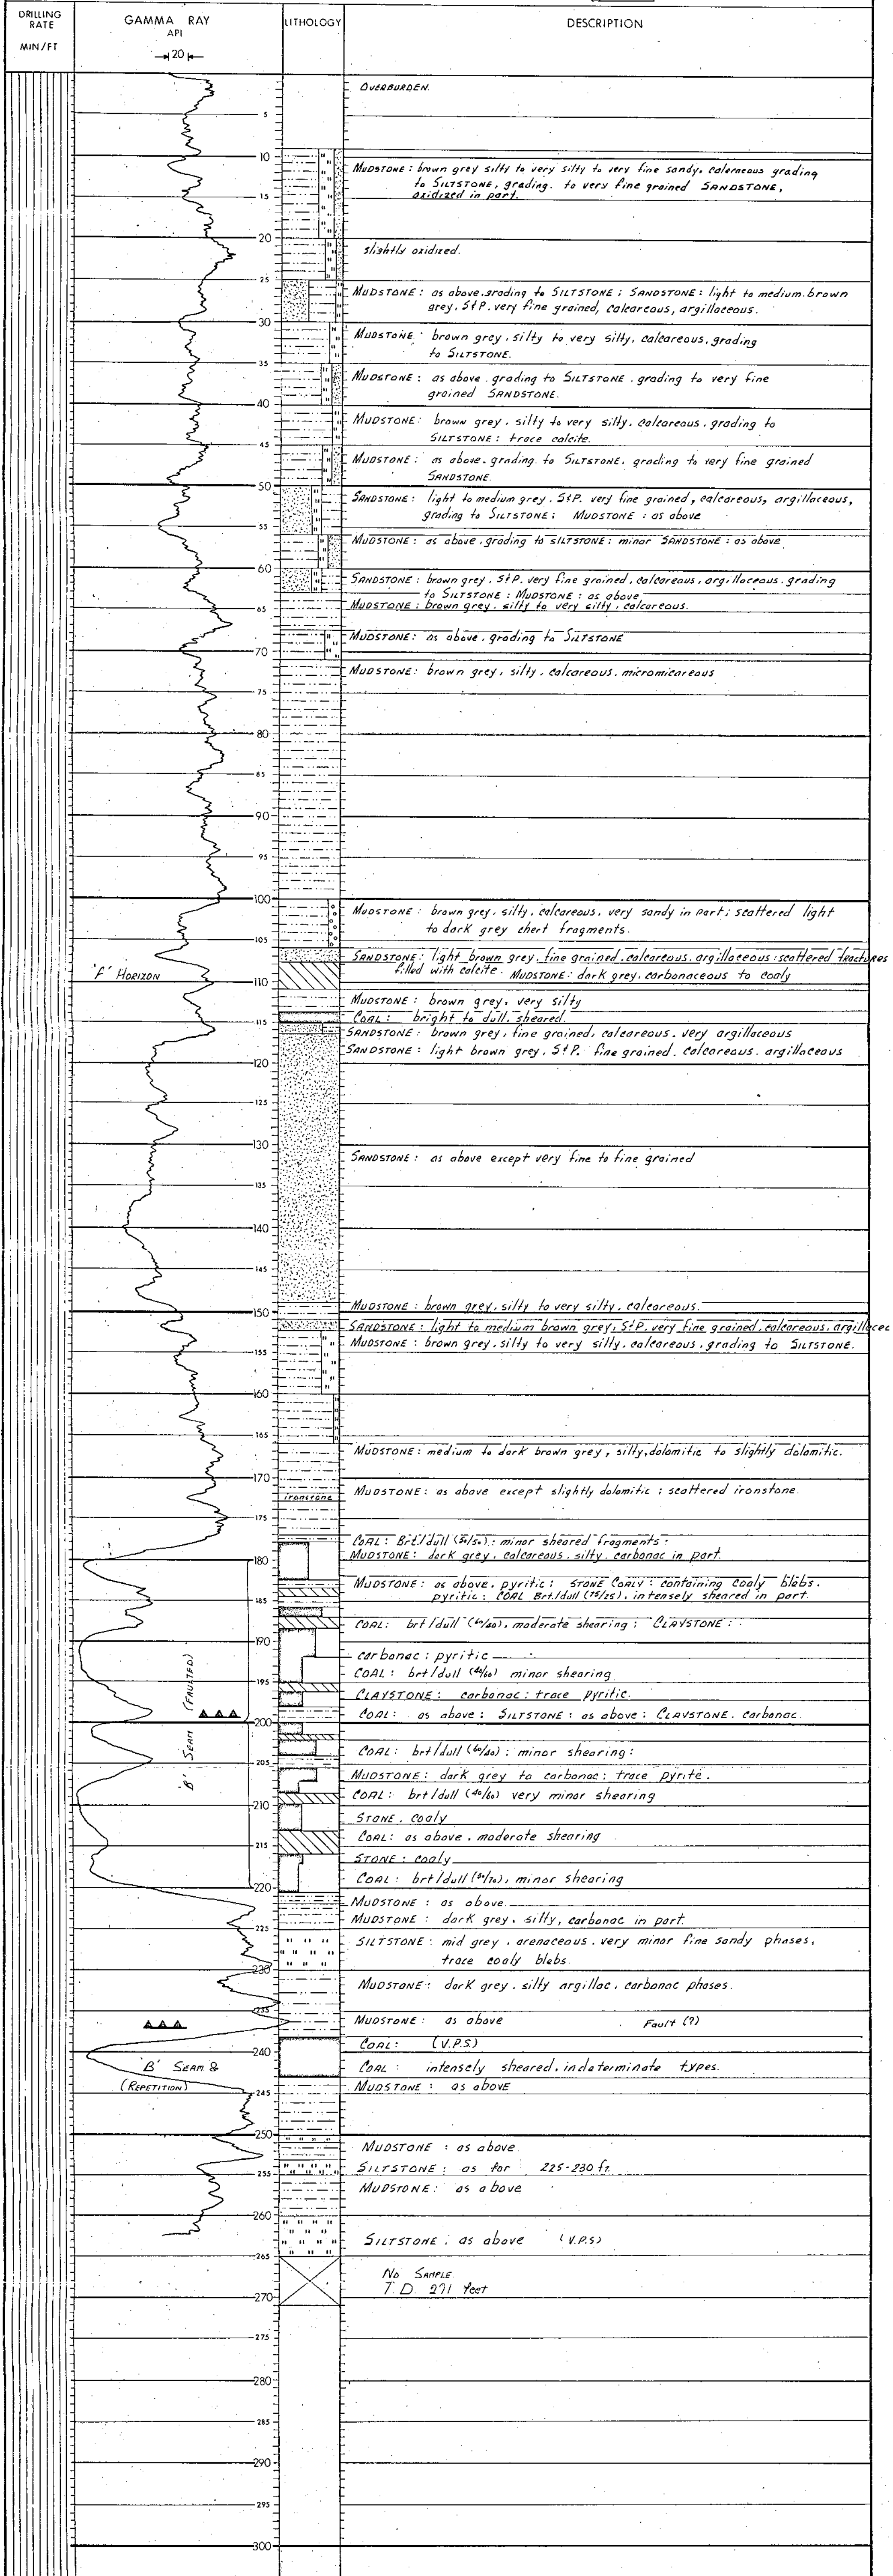 DRILLING
RATE
MIN/FT
GAMMA RAY
API
20
LITHOLOGY
DESCRIPTION
OVERBURDEN.
5
10
MUDSTONE: brown grey silty to very silty to very fine sandy, calcareous grading
to SILTSTONE, grading. to very fine grained SANDSTONE,
oxidized in part.
15
20
slightly oxidized.
25
MUDSTONE: as above, grading to SILTSTONE; SANDSTONE: light to medium brown
grey, S&P. very fine grained, calcareous, argillaceous.
30
MUDSTONE: brown grey, silty to very silty, calcareous, grading
to SILTSTONE.
35
MUDSTONE: as above grading to SILTSTONE. grading to very fine
grained SANDSTONE.
40
MUDSTONE: brown grey, silty to very silty, calcareous, grading to
SILTSTONE: trace calcite.
45
MUDSTONE: as above, grading to SILTSTONE, grading to very fine grained
SANDSTONE.
50
SANDSTONE: light to medium grey, S&P. very fine grained, calcareous, argillaceous,
grading to SILTSTONE; MUDSTONE: as above
55
MUDSTONE: as above, grading to SILTSTONE: minor SANDSTONE: as above
60
SANDSTONE: brown grey, S&P. very fine grained, calcareous, argillaceous, grading
to SILTSTONE: MUDSTONE: as above
MUDSTONE: brown grey, silty to very silty, calcareous.
65
MUDSTONE: as above, grading to SILTSTONE
70
MUDSTONE: brown grey, silty, calcareous, micromicareous
75
80
85
90
95
100
MUDSTONE: brown grey, silty, calcareous, very sandy in part; scattered light
to dark grey chert fragments.
105
SANDSTONE: light brown grey, fine grained, calcareous, argillaceous: scattered fractures
'F' HORIZON
filled with calcite. MUDSTONE: dark grey, carbonaceous to coaly
110
MUDSTONE: brown grey, very silty
COAL: bright to dull, sheared.
115
SANDSTONE: brown grey, fine grained, calcareous, very argillaceous
SANDSTONE: light brown grey, S&P. fine grained, calcareous, argillaceous
120
125
130
SANDSTONE: as above except very fine to fine grained
135
140
145
MUDSTONE: brown grey, silty to very silty, calcareous.
150
SANDSTONE: light to medium brown grey, S&P. very fine grained, calcareous, argillaceo
MUDSTONE: brown grey, silty to very silty, calcareous, grading to SILTSTONE.
155
160
165
MUDSTONE: medium to dark brown grey, silty, dolomitic to slightly dolomitic.
170
MUDSTONE: as above except slightly dolomitic; scattered ironstone.
ironstone
175
COAL: Brt./dull (50/50): minor sheared fragments:
180
MUDSTONE: dark grey, calcareous, silty, carbonac in part.
MUDSTONE: as above, pyritic; STONE COALY: containing coaly blebs.
pyritic: COAL Brt/dull (75/25), intensely sheared in part.
185
COAL: brt/dull (60/40), moderate shearing; CLAYSTONE:
190
carbonac; pyritic
COAL: brt/dull (40/60) minor shearing
195
CLAYSTONE: carbonac: trace pyritic.
COAL: as above: SILTSTONE: as above: CLAYSTONE. carbonac.
'B' SEAM (FAULTED)
200
COAL: brt/dull (60/40): minor shearing:
205
MUDSTONE: dark grey to carbonac: trace pyrite.
COAL: brt/dull (40/60) very minor shearing
210
STONE. coaly
COAL: as above, moderate shearing
215
STONE: coaly
COAL: brt/dull (30/70), minor shearing
220
MUDSTONE: as above
MUDSTONE: dark grey, silty, carbonac in part.
225
SILTSTONE: mid grey, arenaceous, very minor fine sandy phases,
trace coaly blebs.
230
MUDSTONE: dark grey, silty argillac. carbonac phases.
235
MUDSTONE: as above Fault (?)
COAL: (V.P.S)
240
'B' SEAM
COAL: intensely sheared, indeterminate types.
(REPETITION)
MUDSTONE: as above
245
250
MUDSTONE: as above
SILTSTONE: as for 225-230 ft.
255
MUDSTONE: as above
260
SILTSTONE: as above (V.P.S)
265
NO SAMPLE
T.D. 271 feet
270
275
280
285
290
295
300